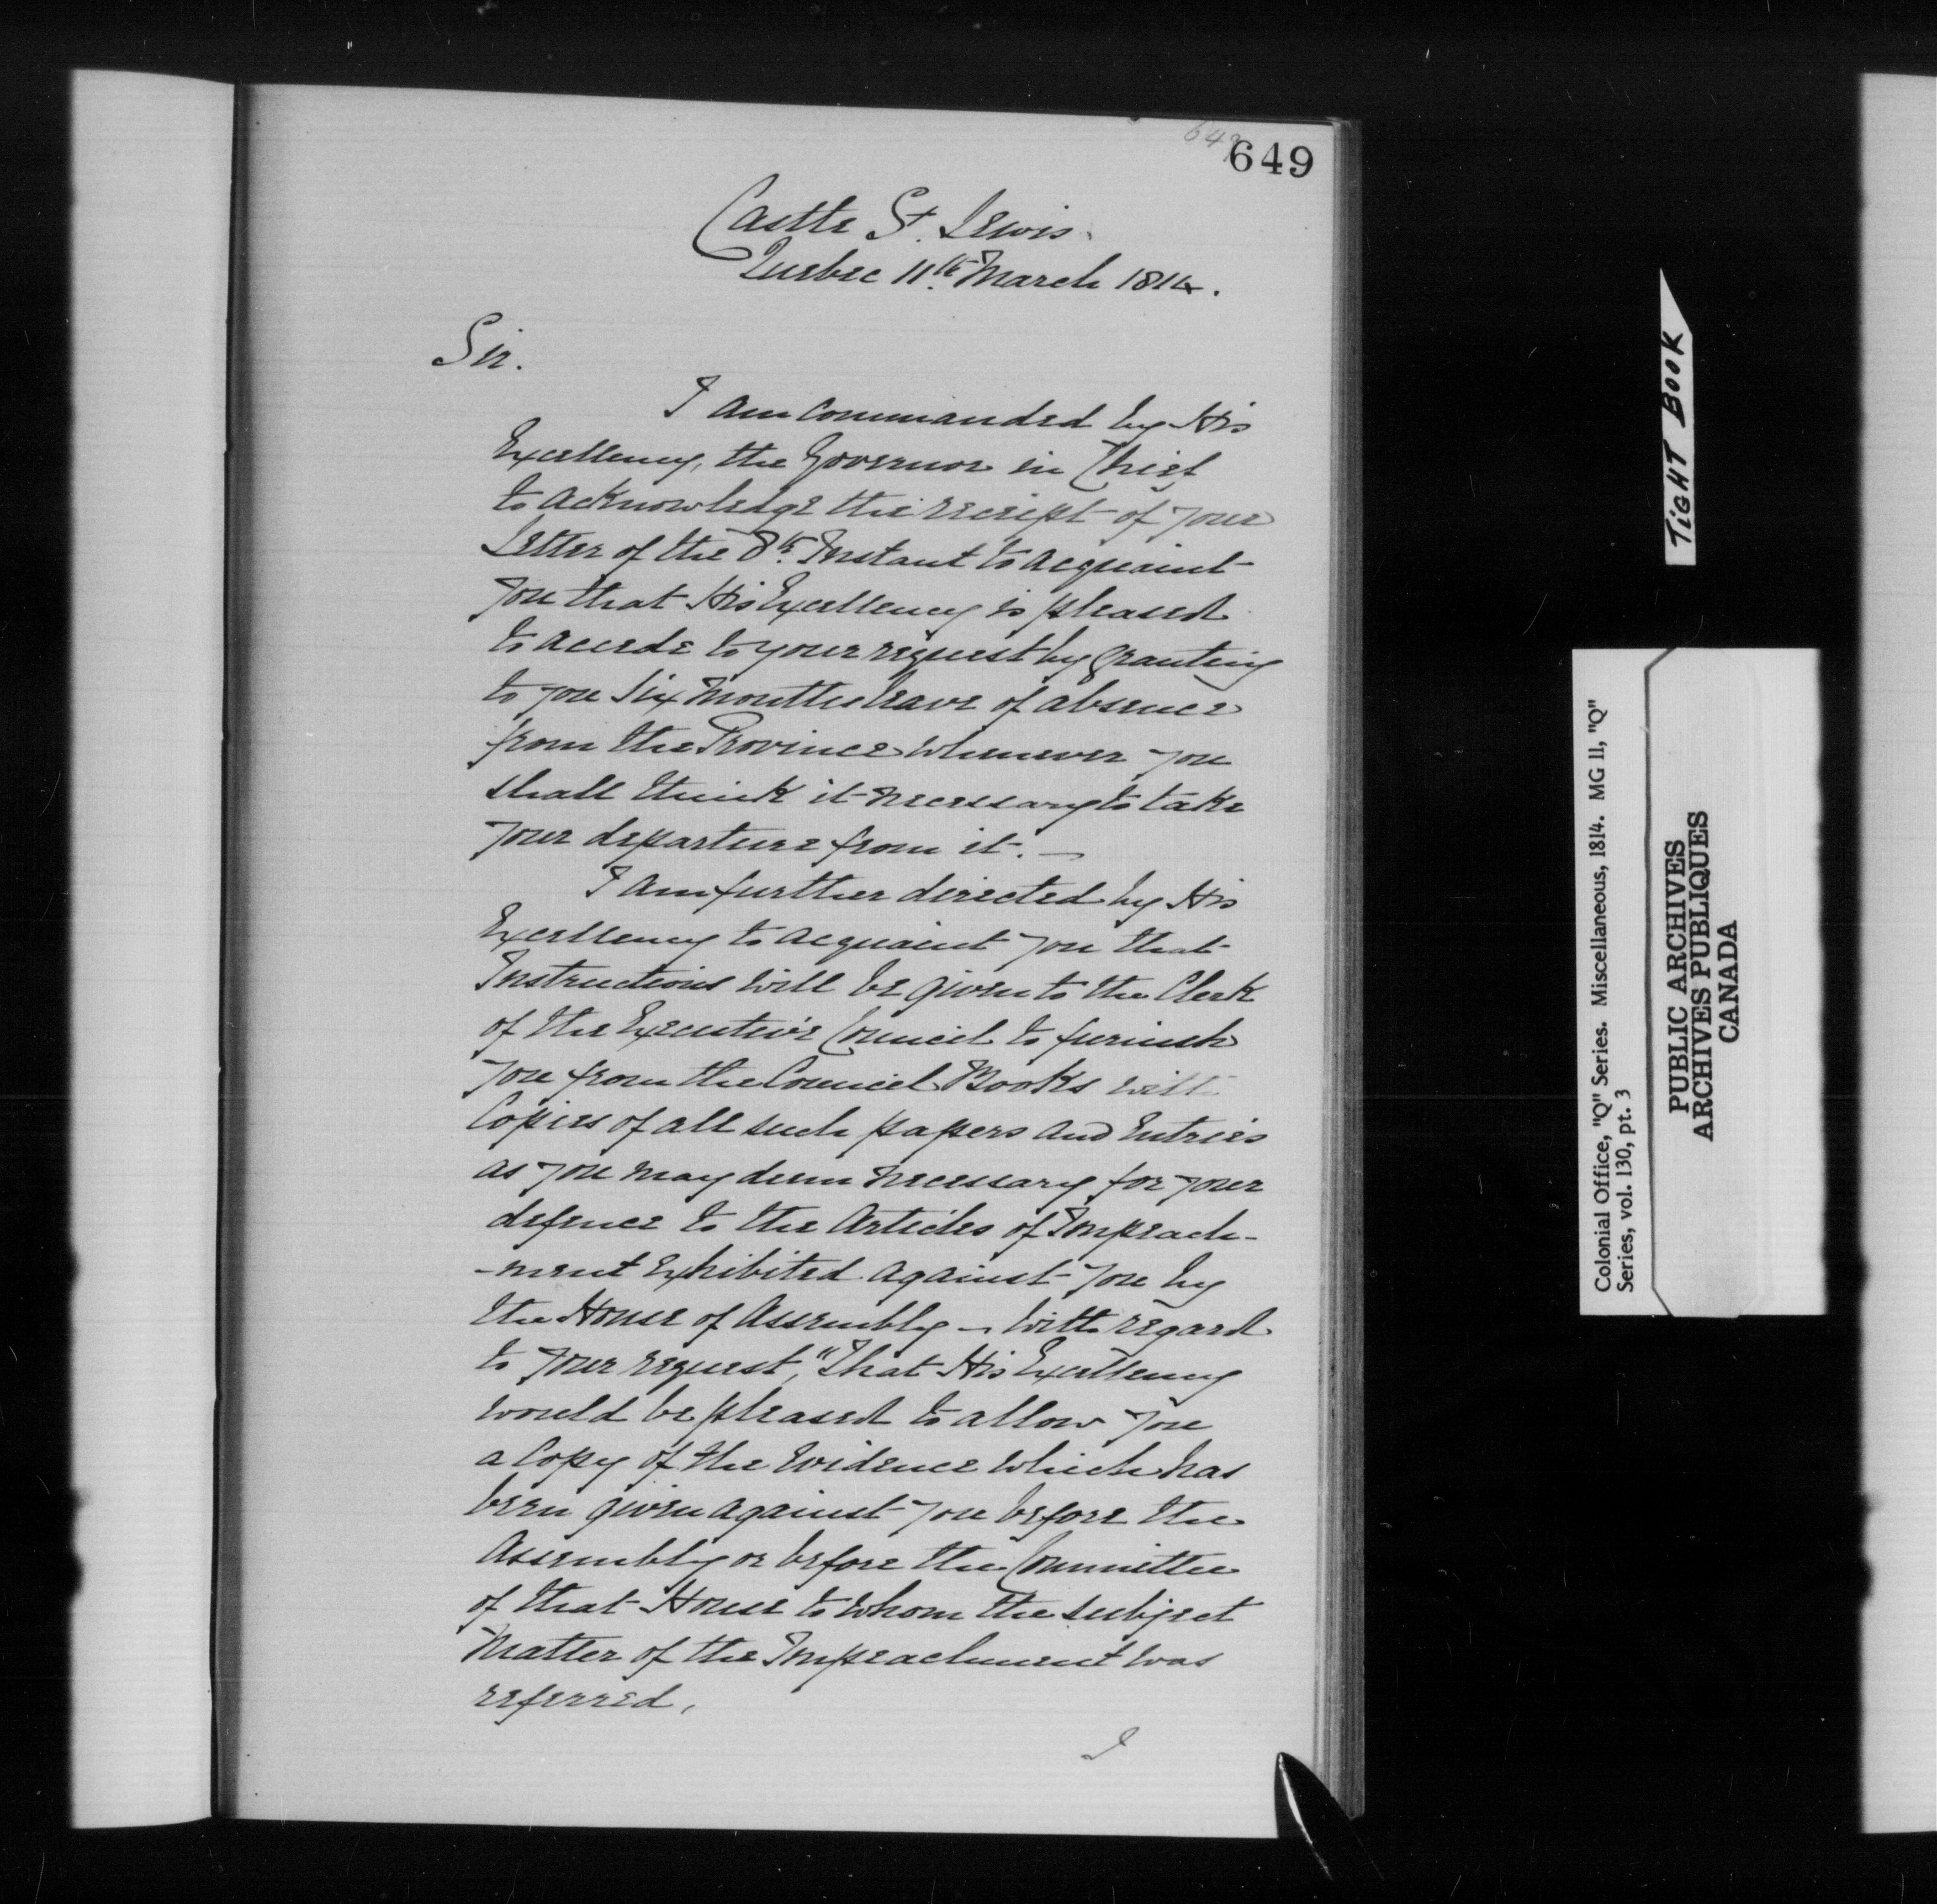 649
Castle St. Lewis
Quebec 11th March 1814.
Sir.
I am Commanded by His
Excellency, the Governor in Chief
to acknowledge the receipt of your
Letter of the 8th Instant to acquaint
you that His Excellency is pleased
to accede to your request by granting
to you Six Months leave of absence
from the Province whenever you
shall think it necessary to take
your departure from it. —
I am further directed by His
Excellency to acquaint you that
Instructions will be given to the Clerk
of the Executive Council to furnish
you from the Council Books with
Copies of all such papers and Entries
as you may deem necessary for your
defence to the Articles of Impeach-
-ment Exhibited against you by
the House of Assembly — With regard
to your request, "That His Excellency
would be pleased to allow you
a Copy of the Evidence which has
been given against you before the
Assembly or before the Committee
of that House to whom the subject
Matter of the Impeachment was
referred,
I
TIGHT BOOK
Colonial Office, "Q" Series. Miscellaneous, 1814. MG 11, "Q"
Series, vol. 130, pt. 3
PUBLIC ARCHIVES
ARCHIVES PUBLIQUES
CANADA